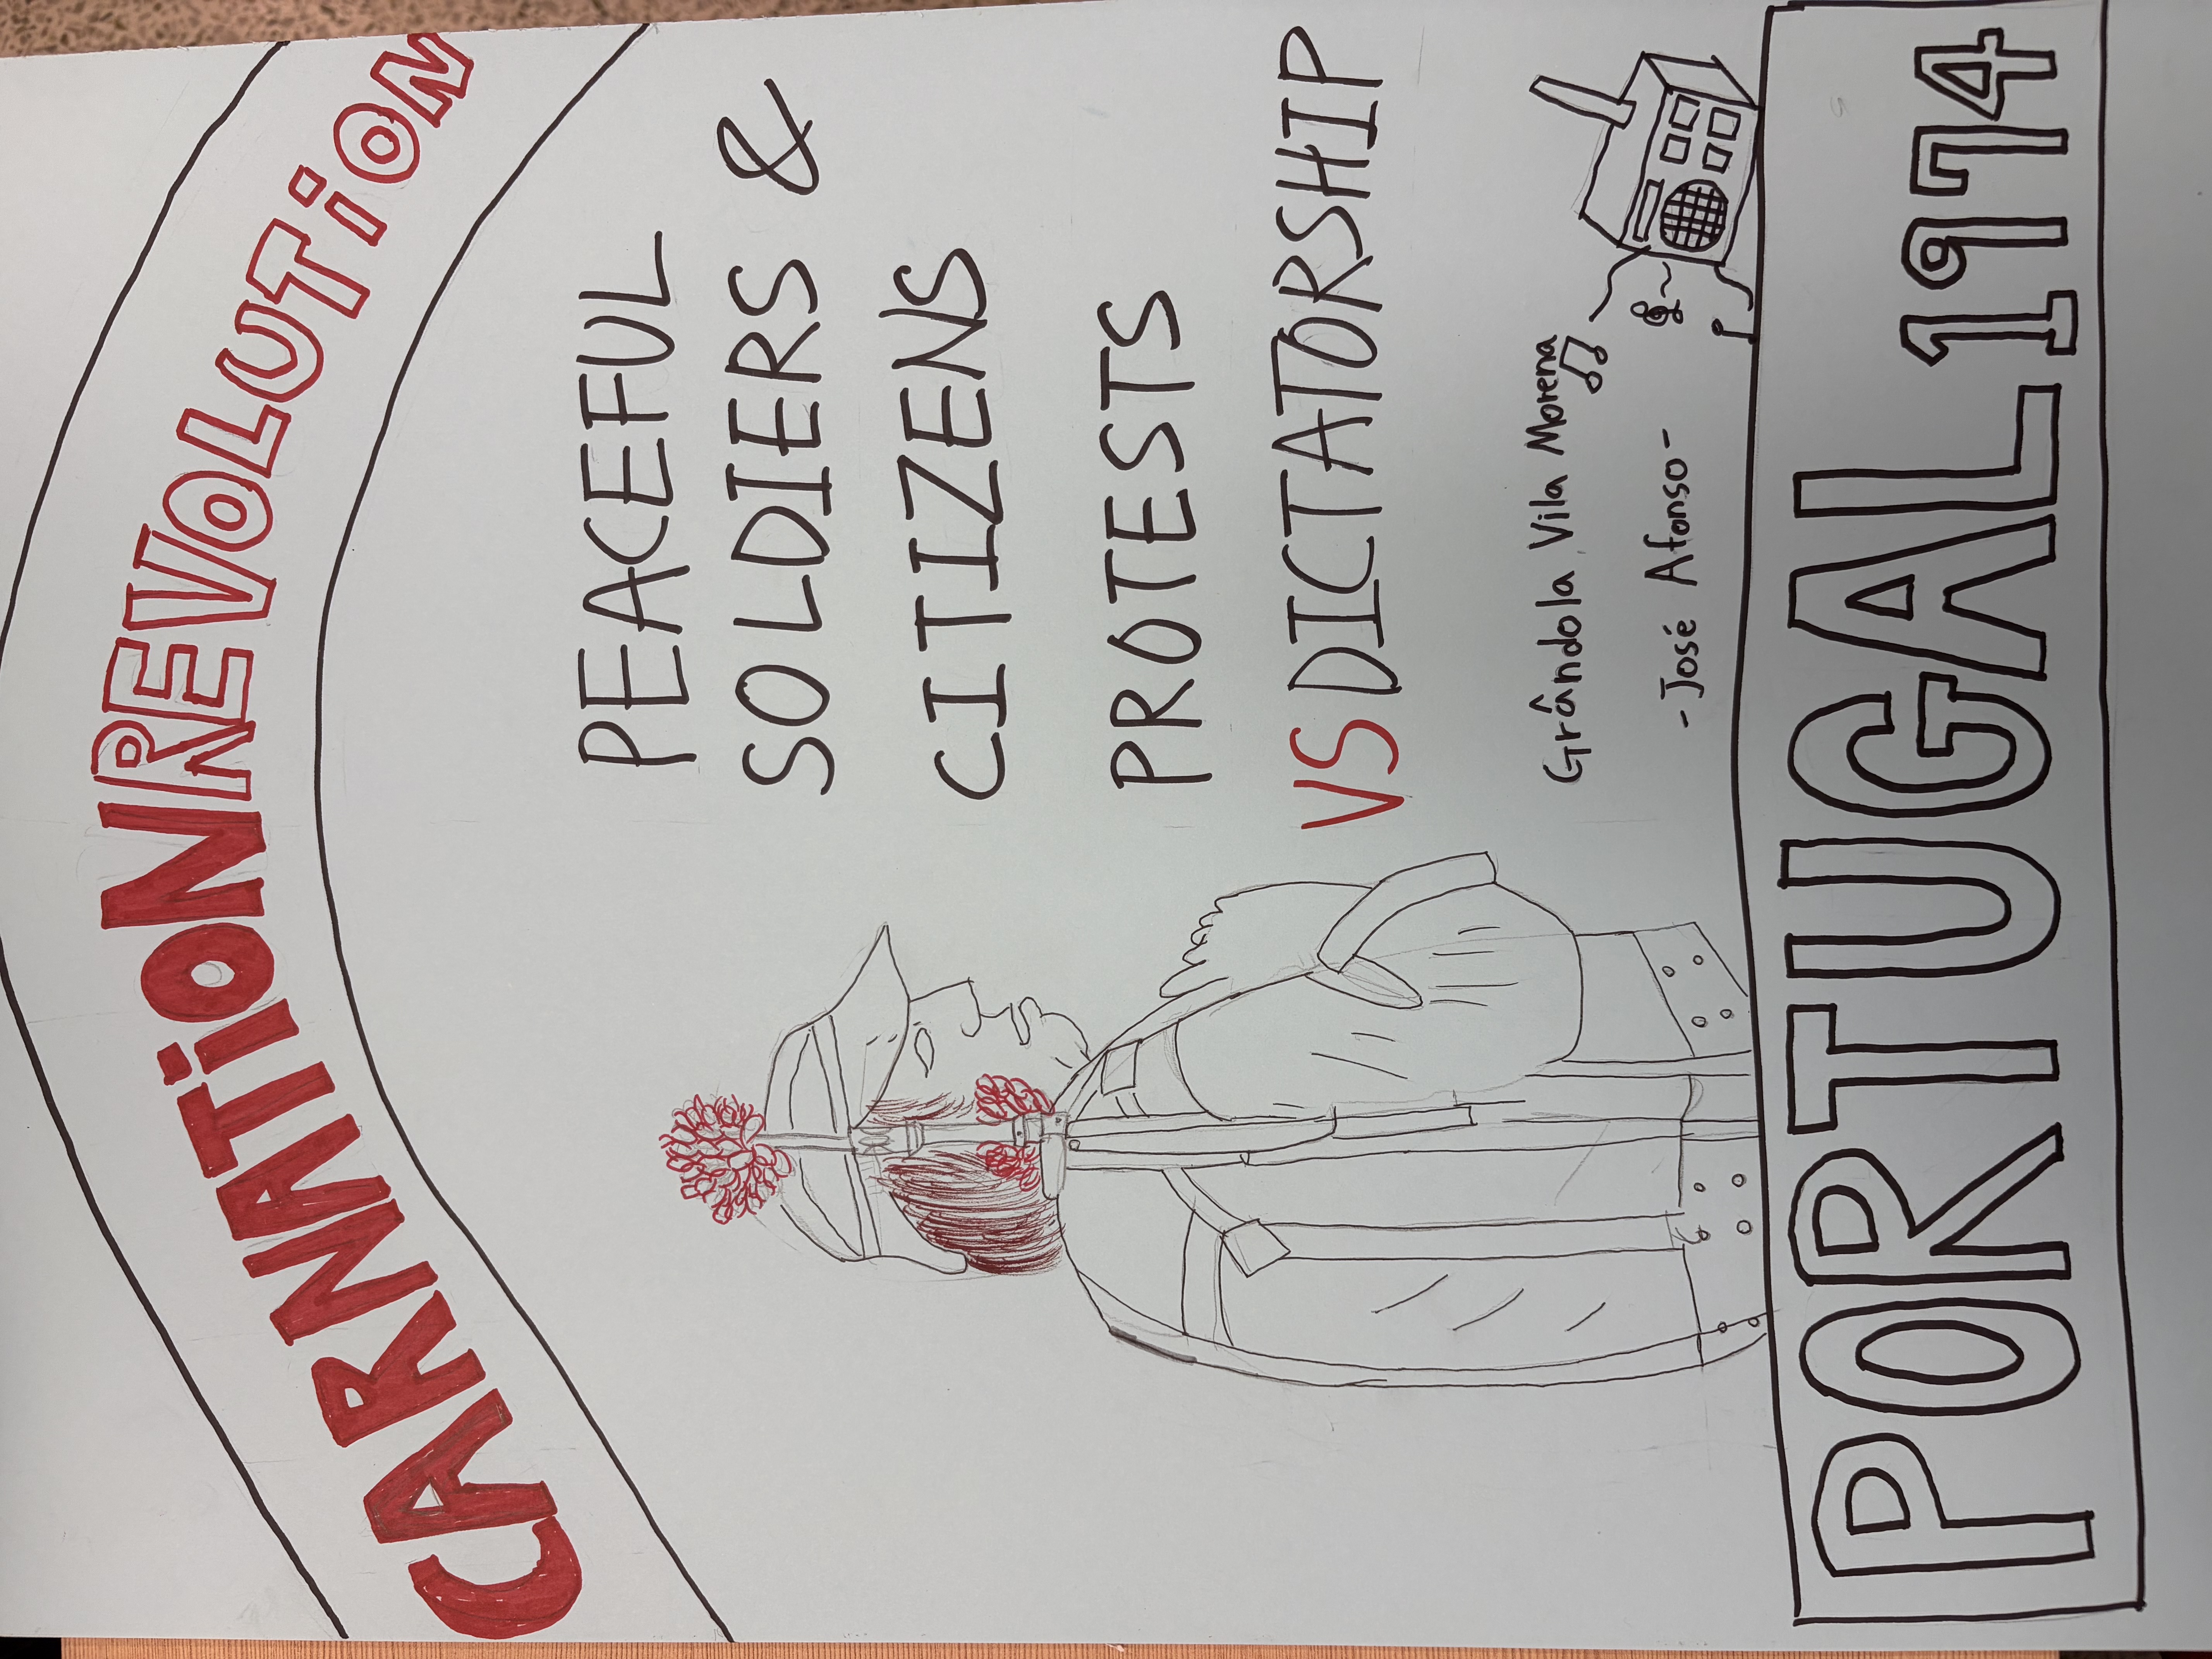 CARNATiON REVOLUTiON
PEACEFUL
SOLDIERS &
CITIZENS
PROTESTS
VS DICTATORSHIP
Grândola Vila Morena
-José Afonso-
PORTUGAL 1974